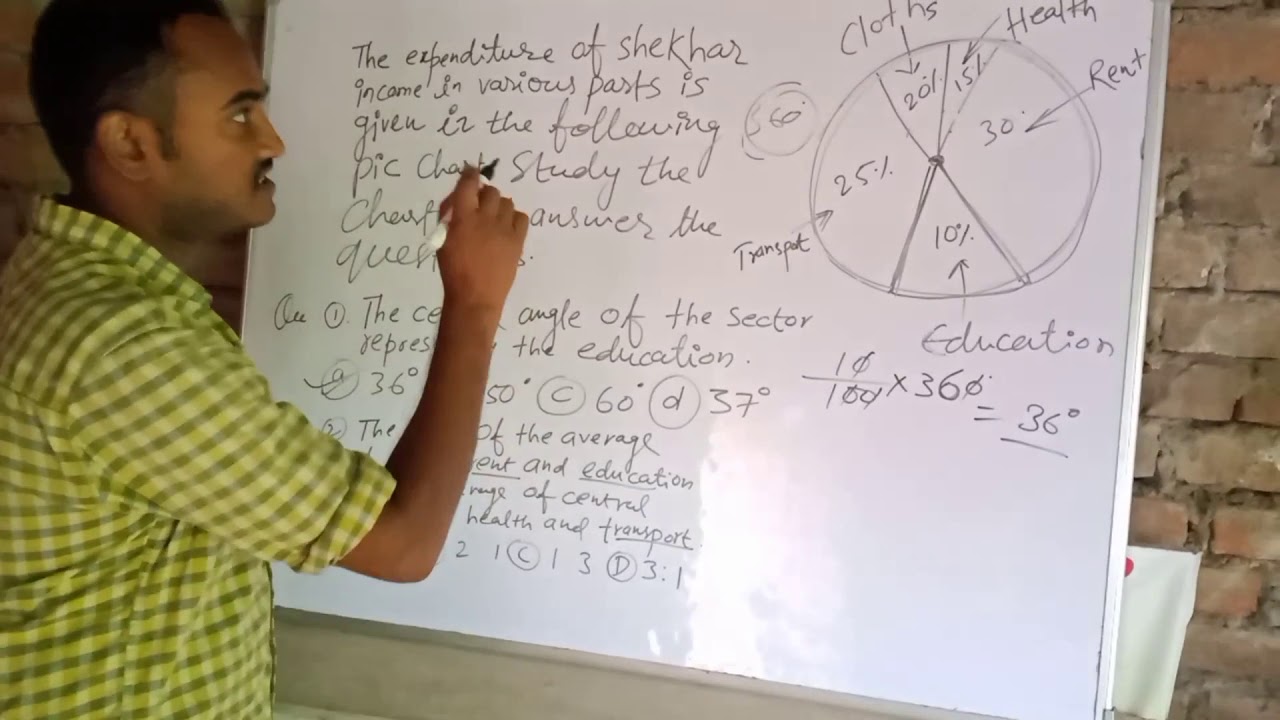 The expenditure of shekhar
income in various parts is
given in the following
pic Chart Study the
answer the
Qu ①. The angle of the sector
the education.
ⓐ 36° 50° ⓒ 60° ⓓ 37°
② The of the average
and education
of central
health and transport
2 1 Ⓒ 1 3 Ⓓ 3:1
360°
Cloths
Health
Rent
20%
15%
30
25%
10%
Transpot
Education
10
100 × 360
= 36°